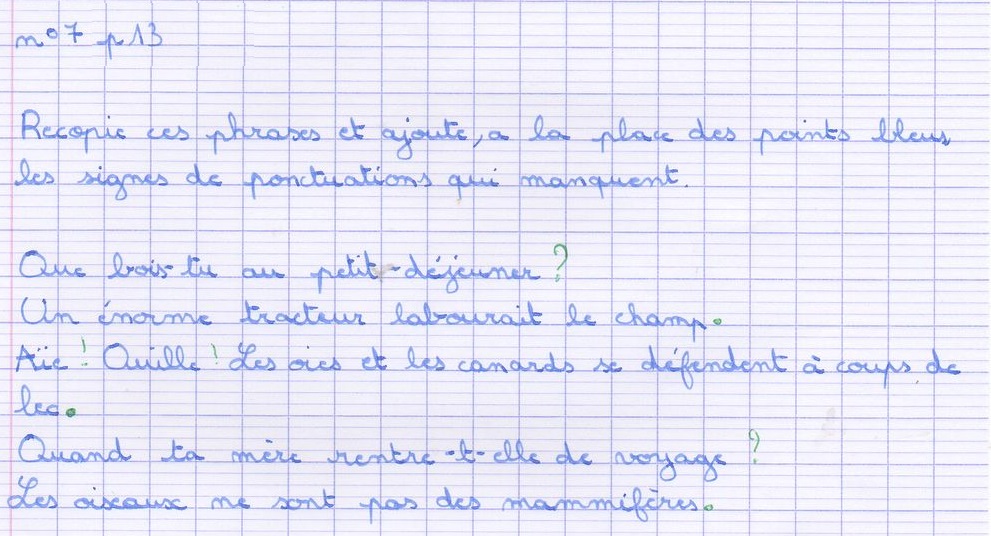 n°7 p13
Recopie ces phrases et ajoute, a la place des points bleus
les signes de ponctuations qui manquent.
Que bois-tu au petit-déjeuner ?
Un énorme tracteur labourait le champ.
Aïe ! Ouille ! Les oies et les canards se défendent à coups de
bec.
Quand ta mère rentre-t-elle de voyage ?
Les oiseaux ne sont pas des mammifères.